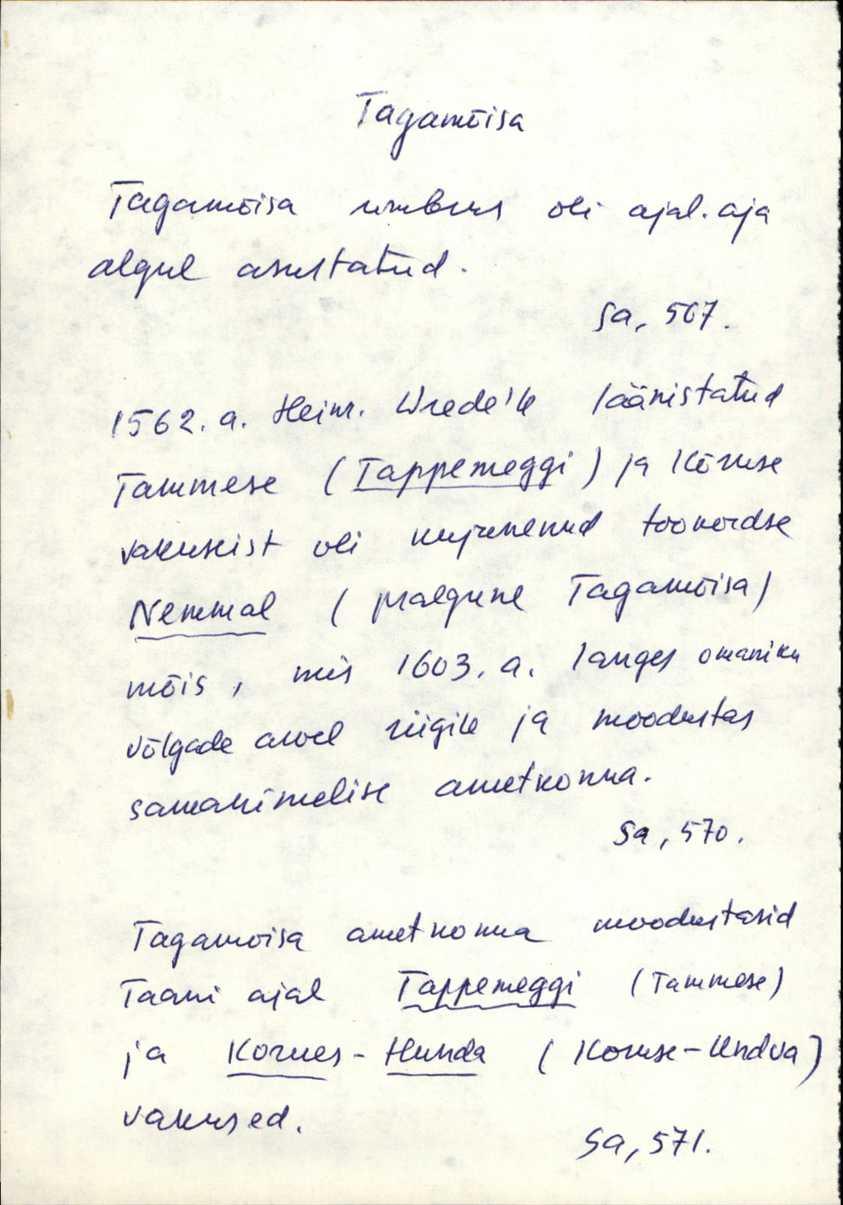 Tagamõisa
Tagamõisa ümbrus oli ajal. aja
algul asustatud.
Sa, 567.
1562. a. Heinr. Wrede'le läänistatud
Tammese (Tappemeggi) ja Kõruse
vakuseist oli kujunenud toonordse
Nemmal (praegune Tagamõisa)
mõis, mis 1603. a. langes omaniku
võlgade arvel riigile ja moodustas
samanimelise ametkonna.
Sa, 570.
Tagamõisa ametkonna moodustasid
Taani ajal Tappemeggi (Tammese)
ja Korues-Hunda (Koruse-Undva)
vakused.
Sa, 571.